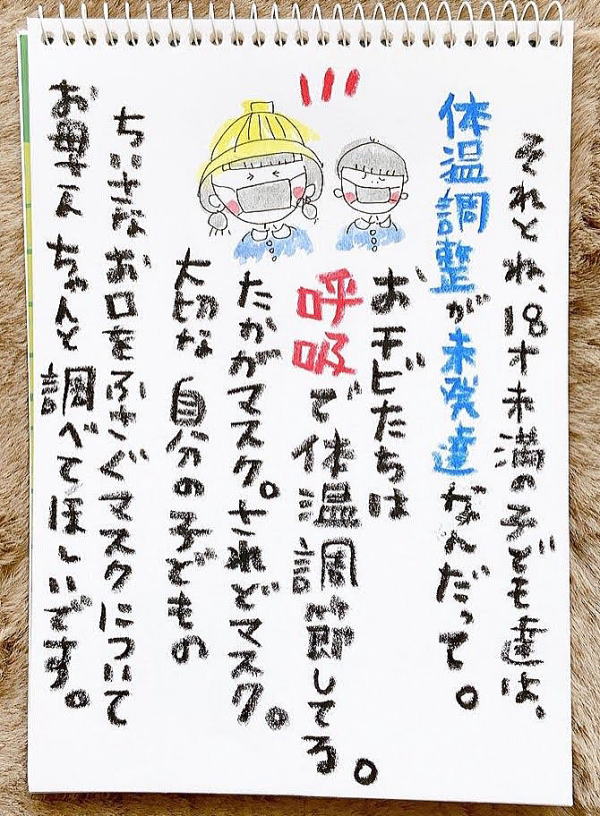 それとね、18才未満の子ども達は、
体温調整が未発達なんだって。
おチビたちは
呼吸で体温調節してる。
たかがマスク。されどマスク。
大切な自分の子どもの
ちいさなお口をふさぐマスクについて
お母さんちゃんと調べてほしいです。